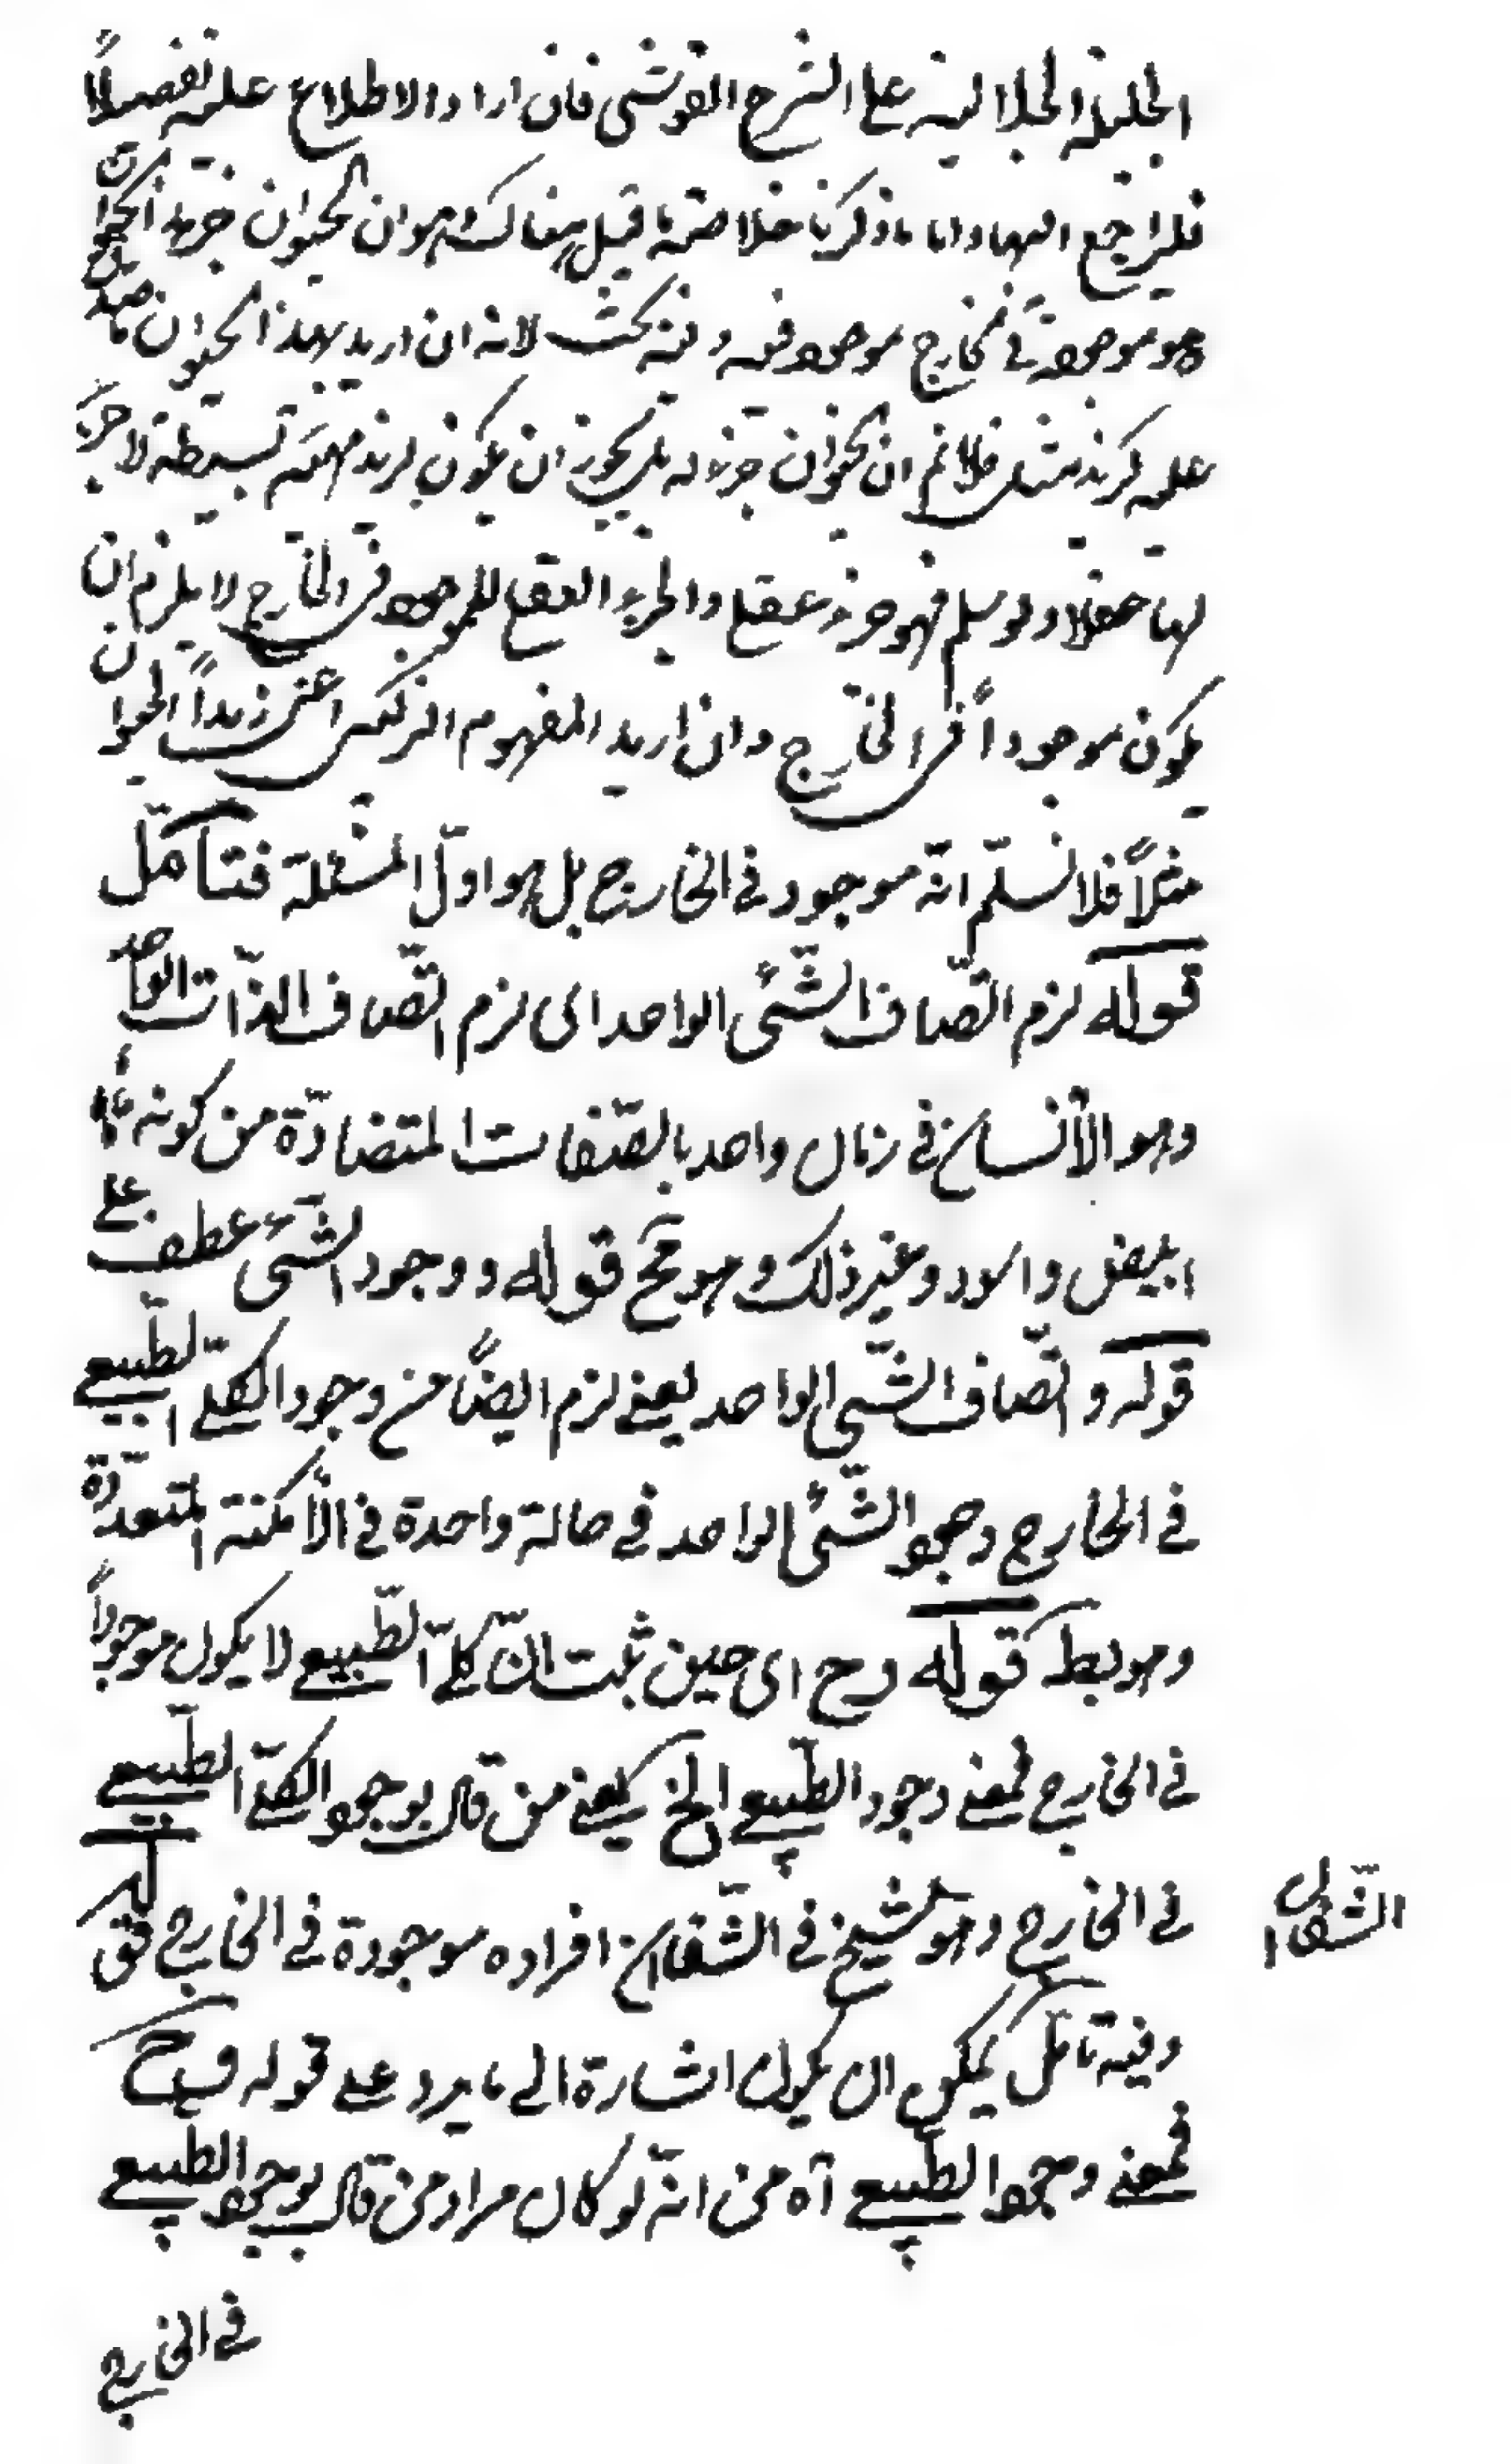 الجليلة الجلالية على الشرح القوشجى فان اراد الاطلاع عليه تفصيلاً
فليراجع اليها واما ما ذكرنا خلاصته ما قيل هناك هو ان الحيوان جزء لهذا الحيوان
وهو موجود فى الخارج موجود فيه وفيه بحث لانه ان اريد بهذا الحيوان ما صدق
عليه كزيد مثلا فلا نم ان الحيوان جزء له بل يجوز ان يكون لزيد مهية بسيطة لا جزء
لها حقلا ولو سلم فهو جزء عقلى والجزء العقلى للموجود فى الخارج لا يلزم ان
يكون موجوداً فى الخارج وان اريد المفهوم التركيبى اعنى زيداً الحيوان
مثلاً فلا نسلّم انّه موجود فى الخارج بل هو اوّل المسئلة فتأمّل
قوله لزم اتّصاف الشّئ الواحد اى لزم اتّصاف الذّات الواحد
وهو الأنسان فى زمان واحد بالصّفات المتضادّة من كونه
ابيض واسود وغير ذلك وهو مح قوله ووجود الشّئ عطف على
قوله واتّصاف الشّئ الواحد يعنى لزم ايضاً من وجود الكلّى الطّبيعى
فى الخارج وجود الشّئ الواحد فى حالة واحدة فى الأمكنة المتعدّدة
وهو بط قوله وح اى حين ثبت انّ كلّى الطّبيعى لا يكون موجوداً
فى الخارج فمعنى وجود الطّبيعى الخ يعنى من قال بوجود الكلّى الطّبيعى
فى الخارج وهو الشيخ فى الشّفا ان افراده موجودة فى الخارج قوله
وفيه تامّل يمكن ان يكون اشارة الى ما يرد على قوله وح
فمعنى وجود الطّبيعى آه من انّه لو كان مراد من قال بوجود الطّبيعى
فى الخارج